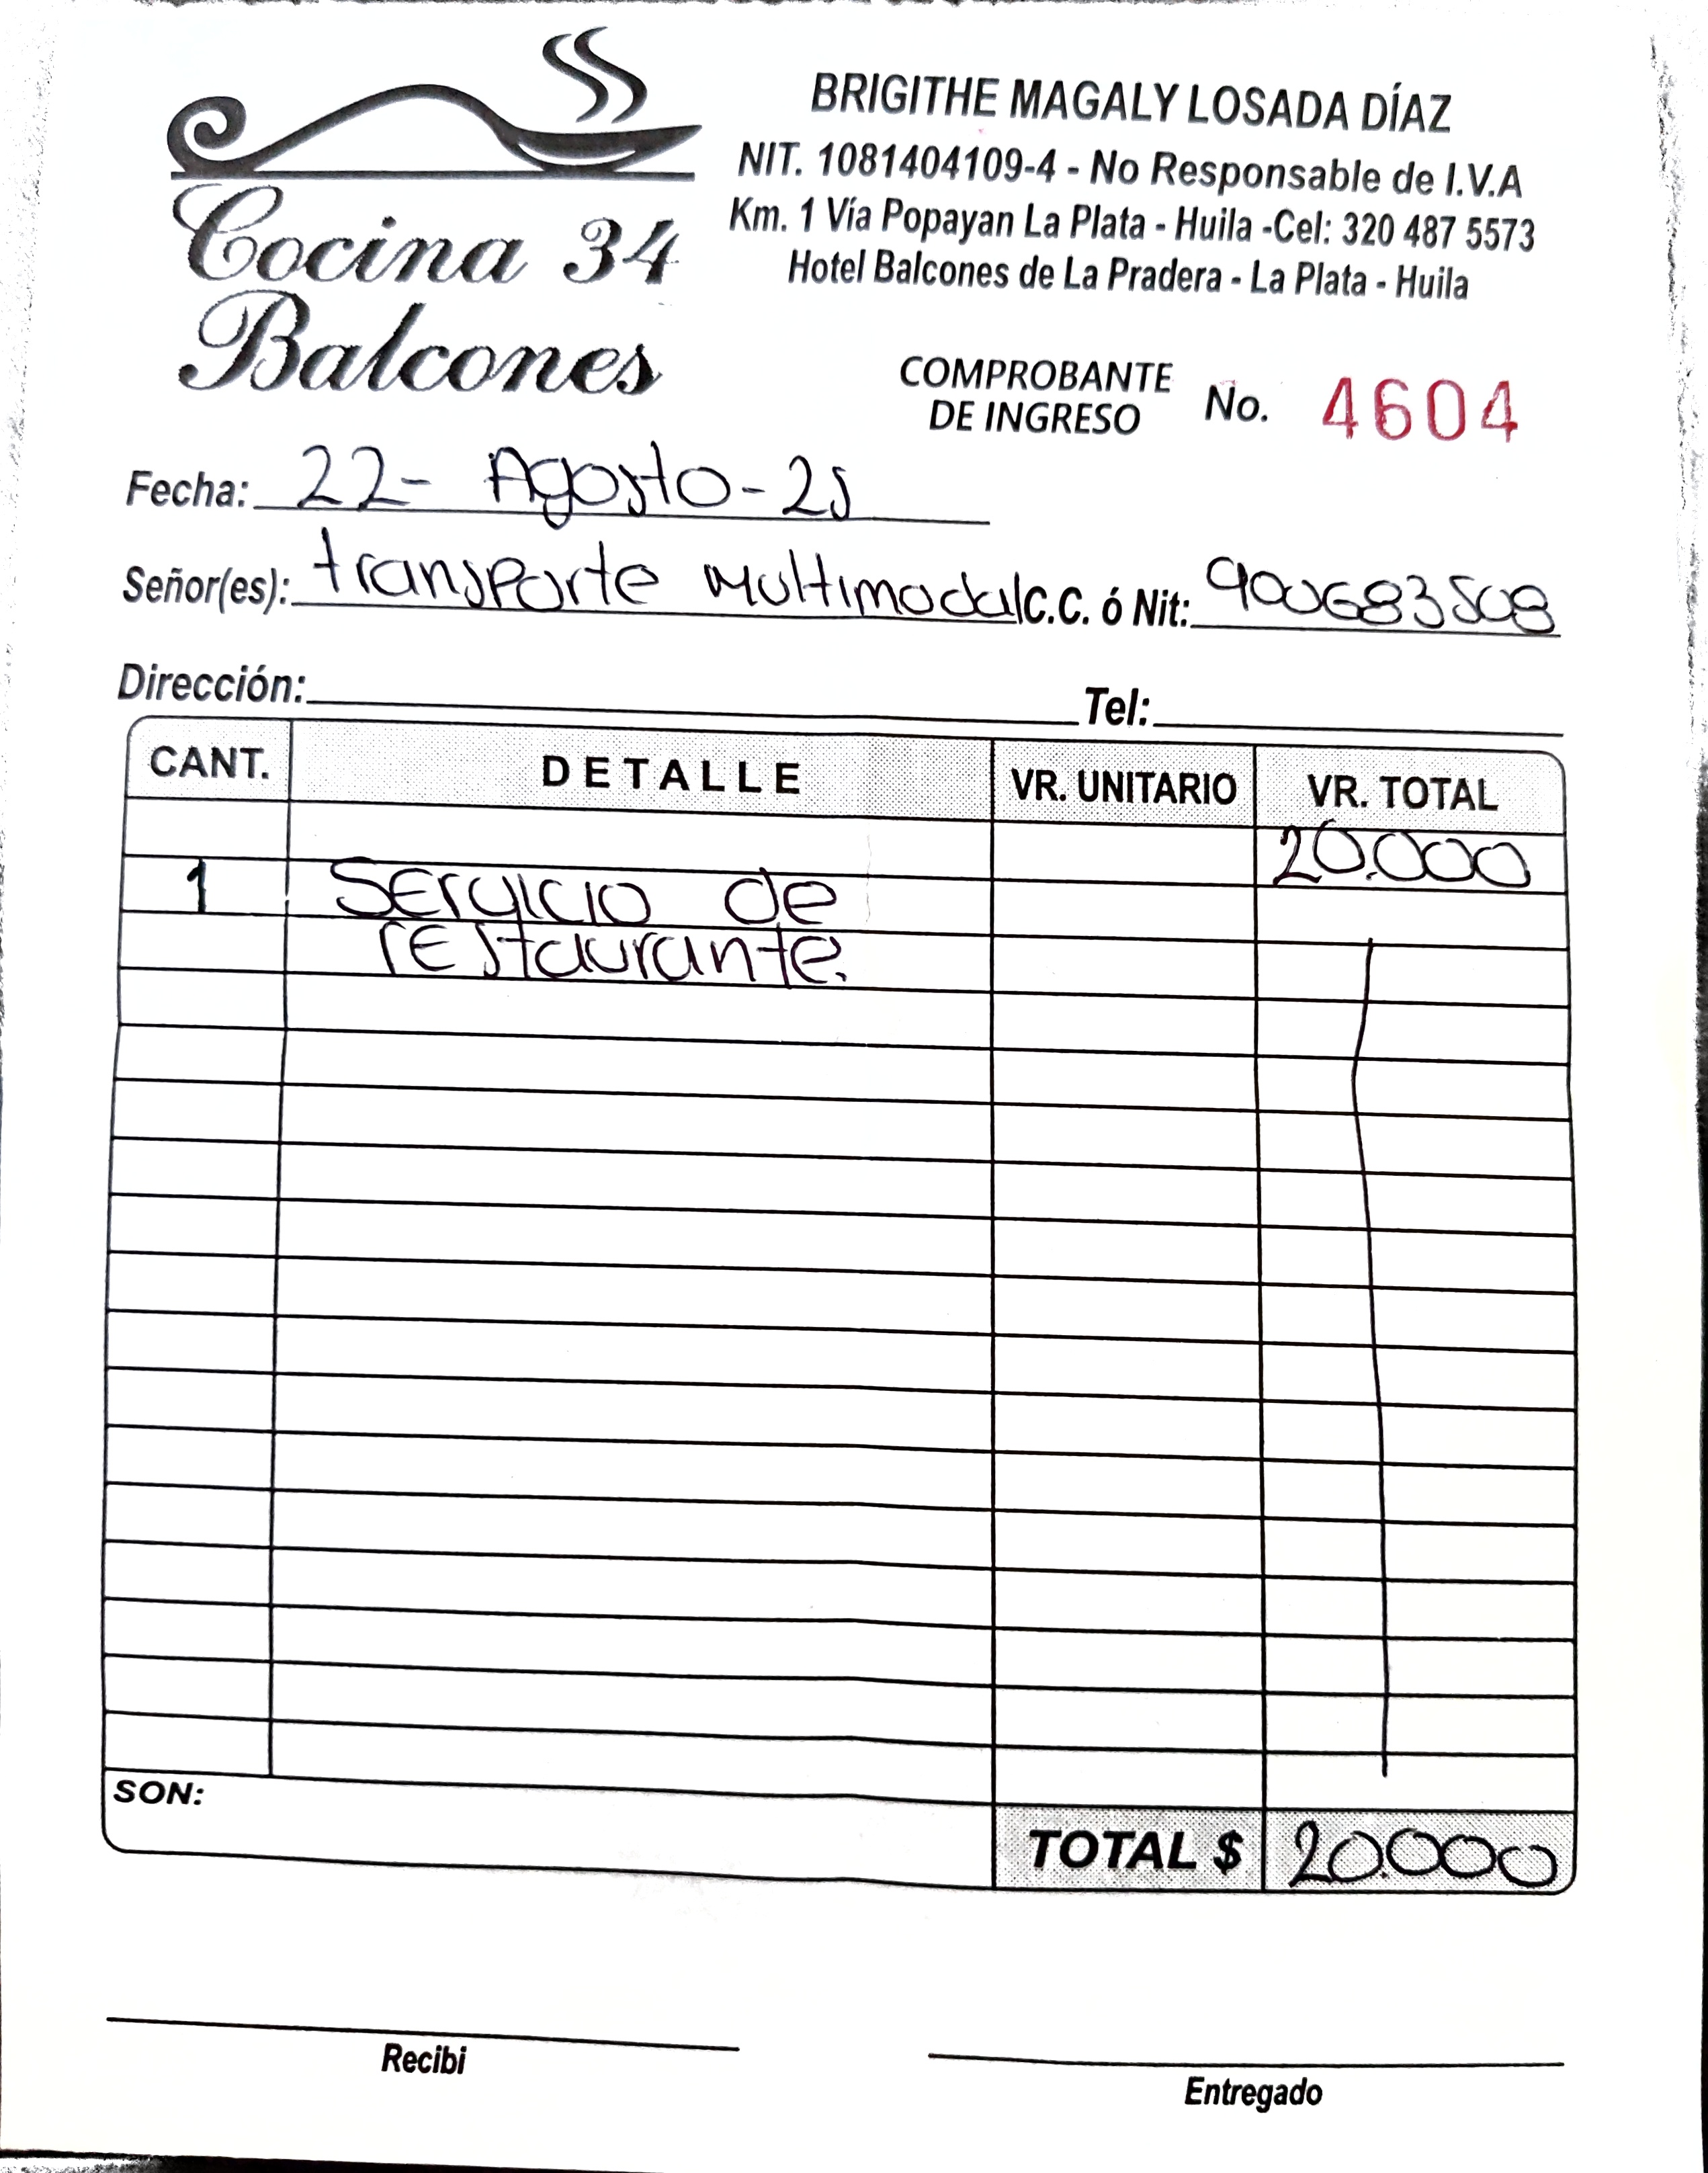 Cocina 34
Balcones
BRIGITHE MAGALY LOSADA DÍAZ
NIT. 1081404109-4 - No Responsable de I.V.A
Km. 1 Vía Popayan La Plata - Huila -Cel: 320 487 5573
Hotel Balcones de La Pradera - La Plata - Huila
COMPROBANTE
DE INGRESO No. 4604
Fecha: 22- Agosto-25
Señor(es): transporte multimodal C.C. ó Nit: 900683508
Dirección: Tel:
CANT. DETALLE VR. UNITARIO VR. TOTAL
20.000
1 Servicio de
restaurante.
SON:
TOTAL $ 20.000
Recibi
Entregado